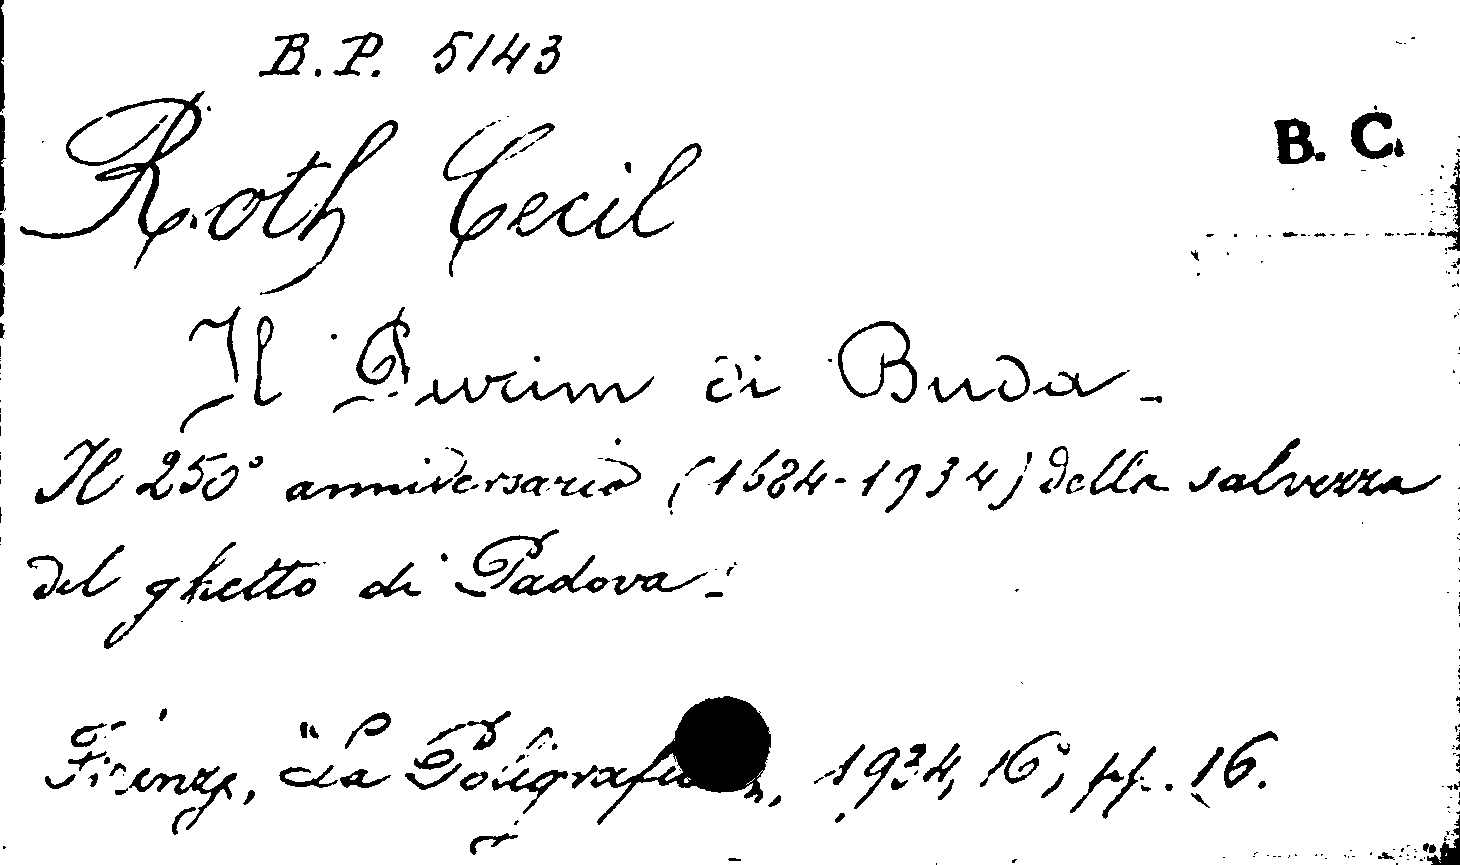 B.P. 5143
B. C.
Roth Cecil
Il Purim di Buda.
Il 250° anniversario (1684-1934) della salvezza
del ghetto di Padova.
Firenze, "La Poligrafica", 1934, 16°, pp. 16.